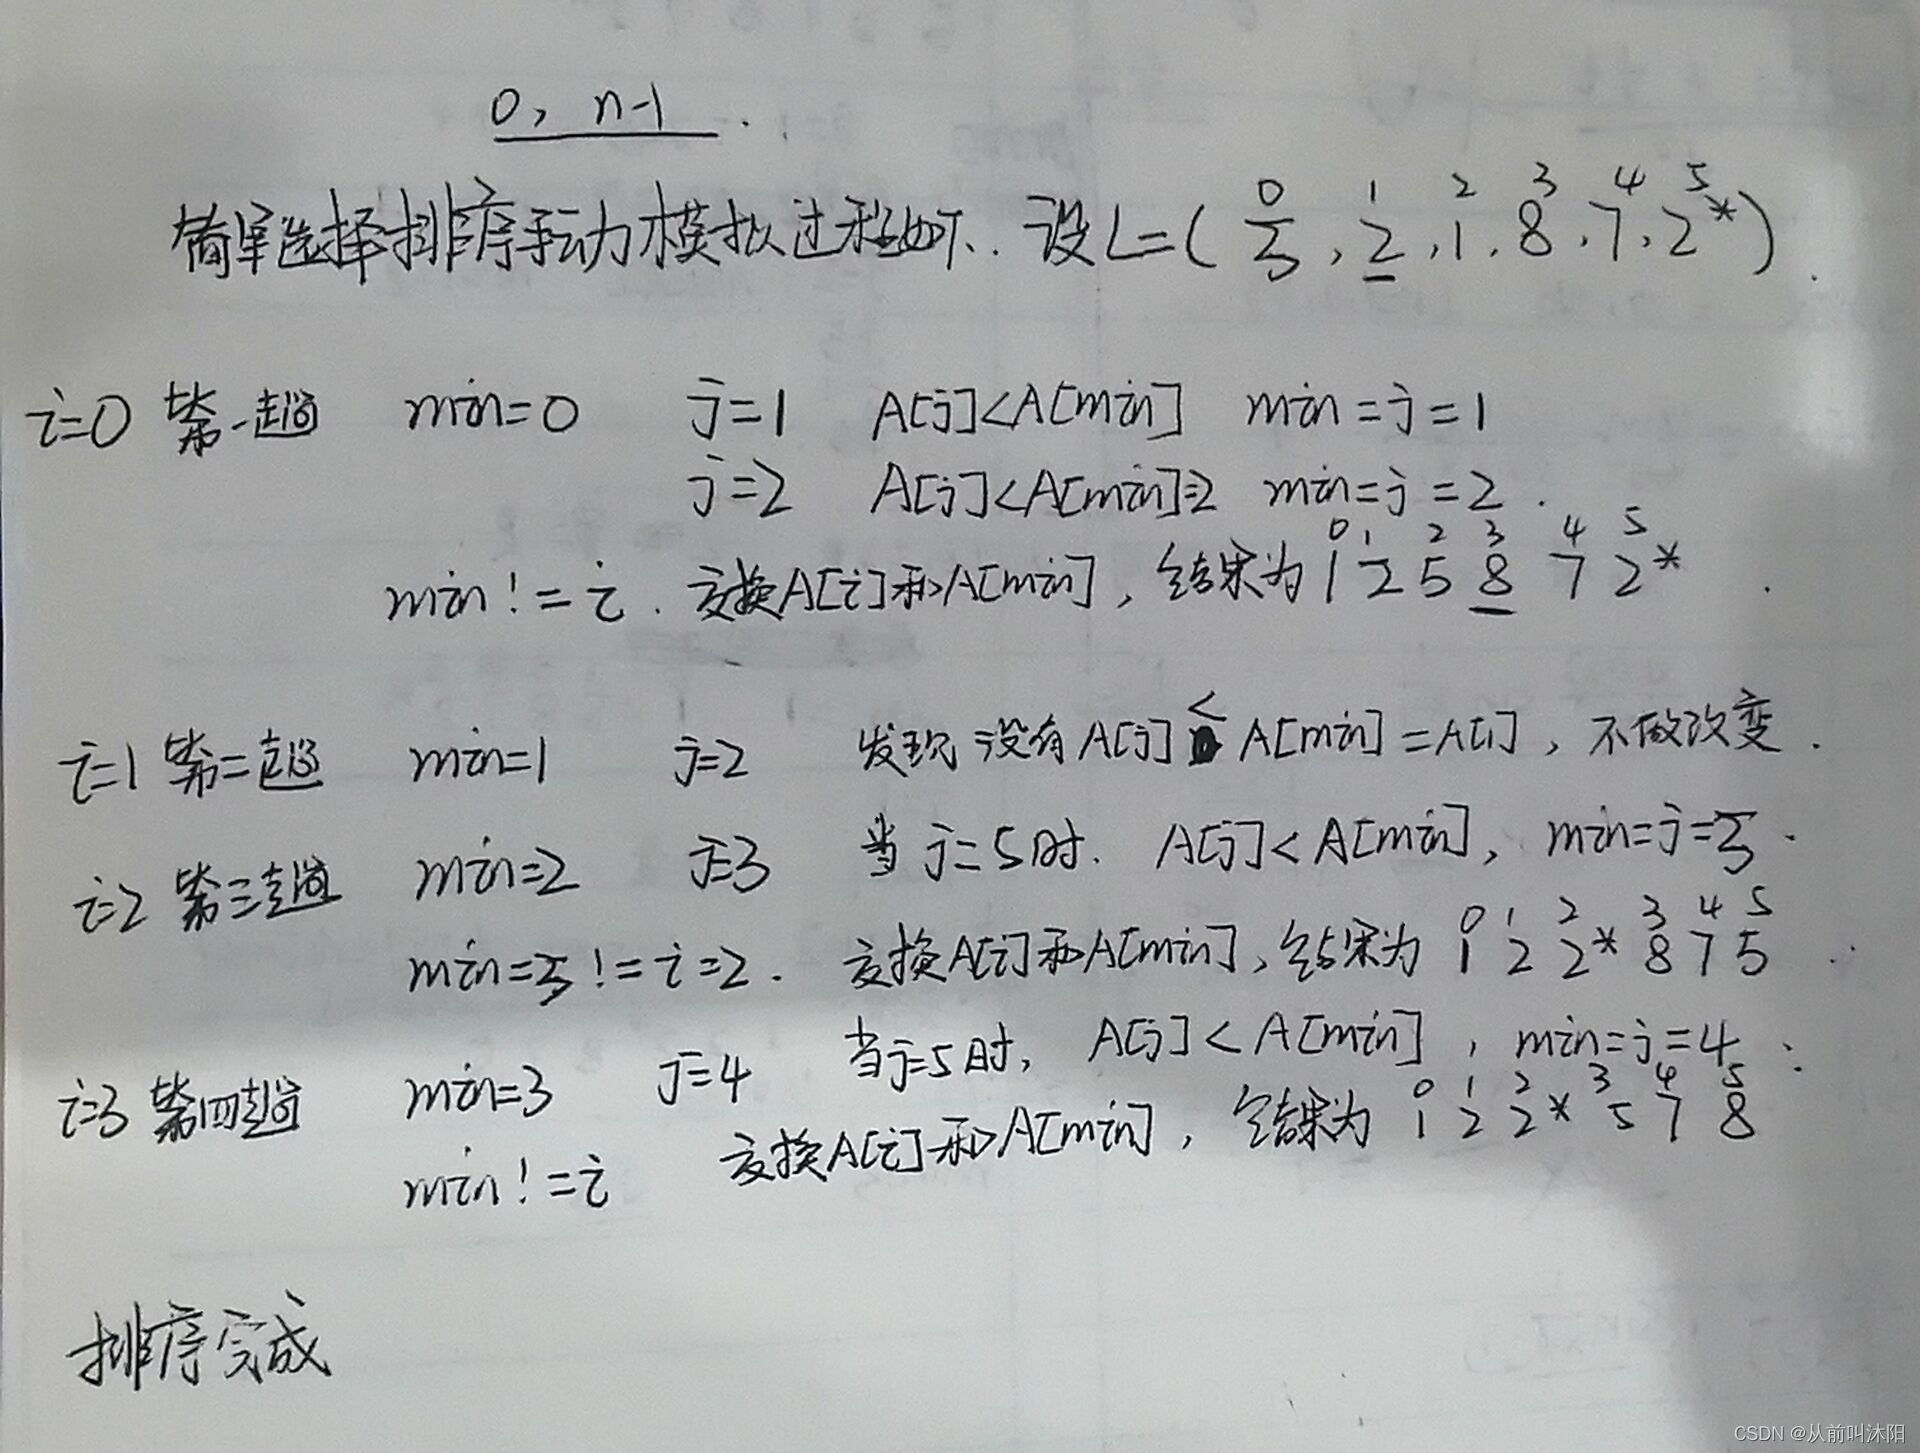 0, n-1 .
0 1 2 3 4 5
简单选择排序手动模拟过程如下. 设L=(5,2,1,8,7,2*).
i=0 第一趟 min=0 j=1 A[j]<A[min] min=j=1
j=2 A[j]<A[min]=2 min=j=2.
0 1 2 3 4 5
min!=i. 交换A[i]和A[min], 结果为 1 2 5 8 7 2* .
i=1 第二趟 min=1 j=2 发现没有A[j]<A[min]=A[1], 不做改变.
i=2 第三趟 min=2 j=3 当j=5时. A[j]<A[min], min=j=5.
0 1 2 3 4 5
min=5!=i=2. 交换A[i]和A[min], 结果为 1 2 2* 8 7 5 .
i=3 第四趟 min=3 j=4 当j=5时, A[j]<A[min], min=j=4 .
0 1 2 3 4 5
min!=i 交换A[i]和A[min], 结果为 1 2 2* 5 7 8
排序完成
CSDN @从前叫沐阳